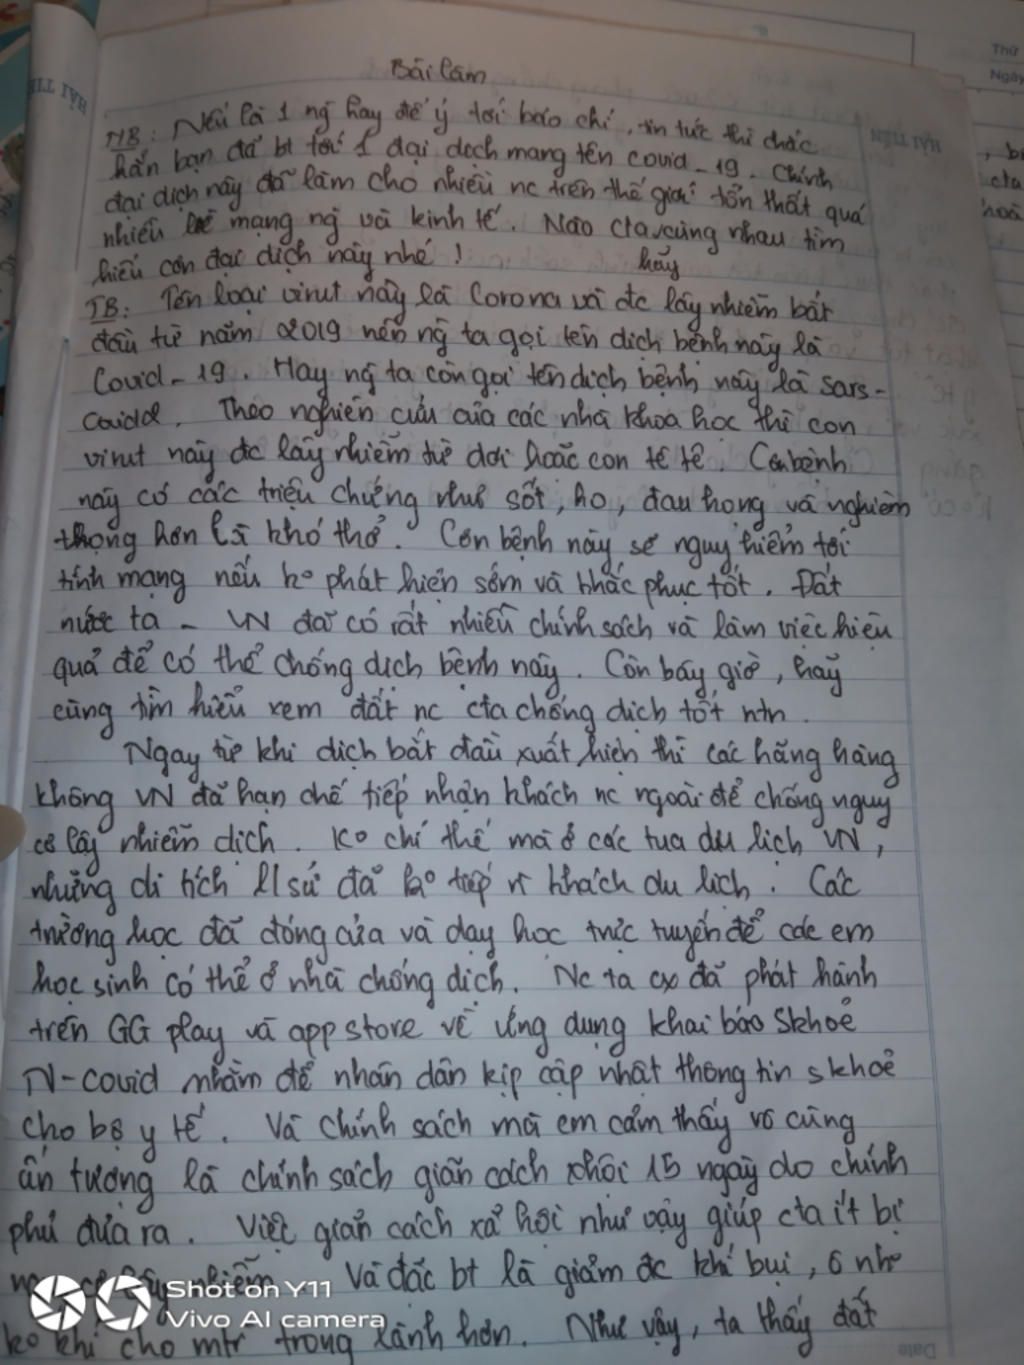 Bài làm
MB: Nếu là 1 ng hay để ý tới báo chí, tin tức thì chắc
hẳn bạn đã bt tới 1 đại dịch mang tên covid-19. Chính
đại dịch này đã làm cho nhiều nc trên thế giới tổn thất quá
nhiều về mạng ng và kinh tế. Nào cta cùng nhau tìm
hiểu cơn đại dịch này nhé! hãy
TB: Tên loại virut này là Corona và đc lây nhiễm bắt
đầu từ năm 2019 nên ng ta gọi tên dịch bệnh này là
Covid-19. Hay ng ta còn gọi tên dịch bệnh này là sars-
Theo nghiên cứu của các nhà khoa học thì con
virut này đc lây nhiễm từ dơi hoặc con tê tê. Cơn bệnh
này có các triệu chứng như sốt, ho, đau họng và nghiêm
thọng hơn là khó thở. Cơn bệnh này sẽ nguy hiểm tới
tính mạng nếu ko phát hiện sớm và khắc phục tốt. Đất
nước ta - VN đã có rất nhiều chính sách và làm việc hiệu
quả để có thể chống dịch bệnh này. Còn bây giờ, hãy
cùng tìm hiểu xem đất nc cta chống dịch tốt ntn.
Ngay từ khi dịch bắt đầu xuất hiện thì các hãng hàng
không VN đã hạn chế tiếp nhận khách nc ngoài để chống nguy
cơ lây nhiễm dịch. Ko chỉ thế mà ở các tua du lịch VN,
những di tích l/sử đã ko tiếp khách du lịch. Các
trường học đã đóng cửa và dạy học trực tuyến để các em
học sinh có thể ở nhà chống dịch. Nc ta cx đã phát hành
trên GG play và app store về ứng dụng khai báo Skhoẻ
N-covid nhằm để nhân dân kịp cập nhật thông tin skhoẻ
cho bộ y tế. Và chính sách mà em cảm thấy vô cùng
ấn tượng là chính sách giãn cách xhội 15 ngày do chính
phủ đưa ra. Việc giãn cách xã hội như vậy giúp cta ít bị
nhiễm. Và đặc bt là giảm đc khí bụi, ô nh
ko khí cho mtr trong lành hơn. Như vậy, ta thấy đất
Shot on Y11
Vivo AI camera
HẢI TIẾN
Thứ
Ngày
cta
Date